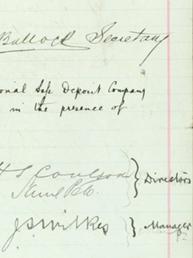 Bullock Secretary
ional Safe Deposit Company
in the presence of
H S Coulson
} Directors
J S Wilkes } Manager